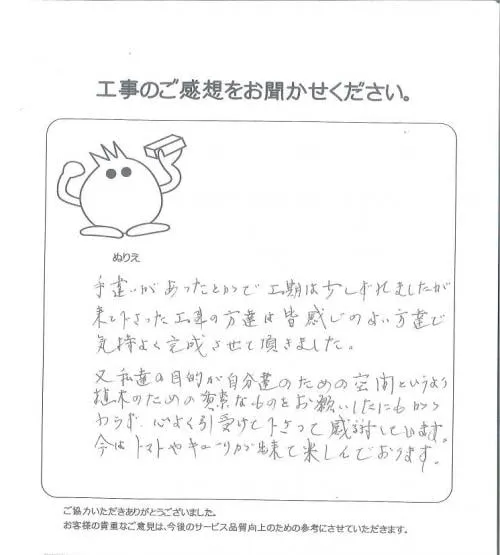 工事のご感想をお聞かせください。
ぬりえ
手違いがあったとかで工期は少しずれましたが
来て下さった工事の方達は皆感じのよい方達で
気持よく完成させて頂きました。
又私達の目的が自分達のための空間というより
植木のための なものをお願いしたにもかか
わらず、心よく引受けて下さって感謝しています。
今はトマトやキューリが出来て楽しんでおります。
ご協力いただきありがとうございました。
お客様の貴重なご意見は、今後のサービス品質向上のための参考にさせていただきます。